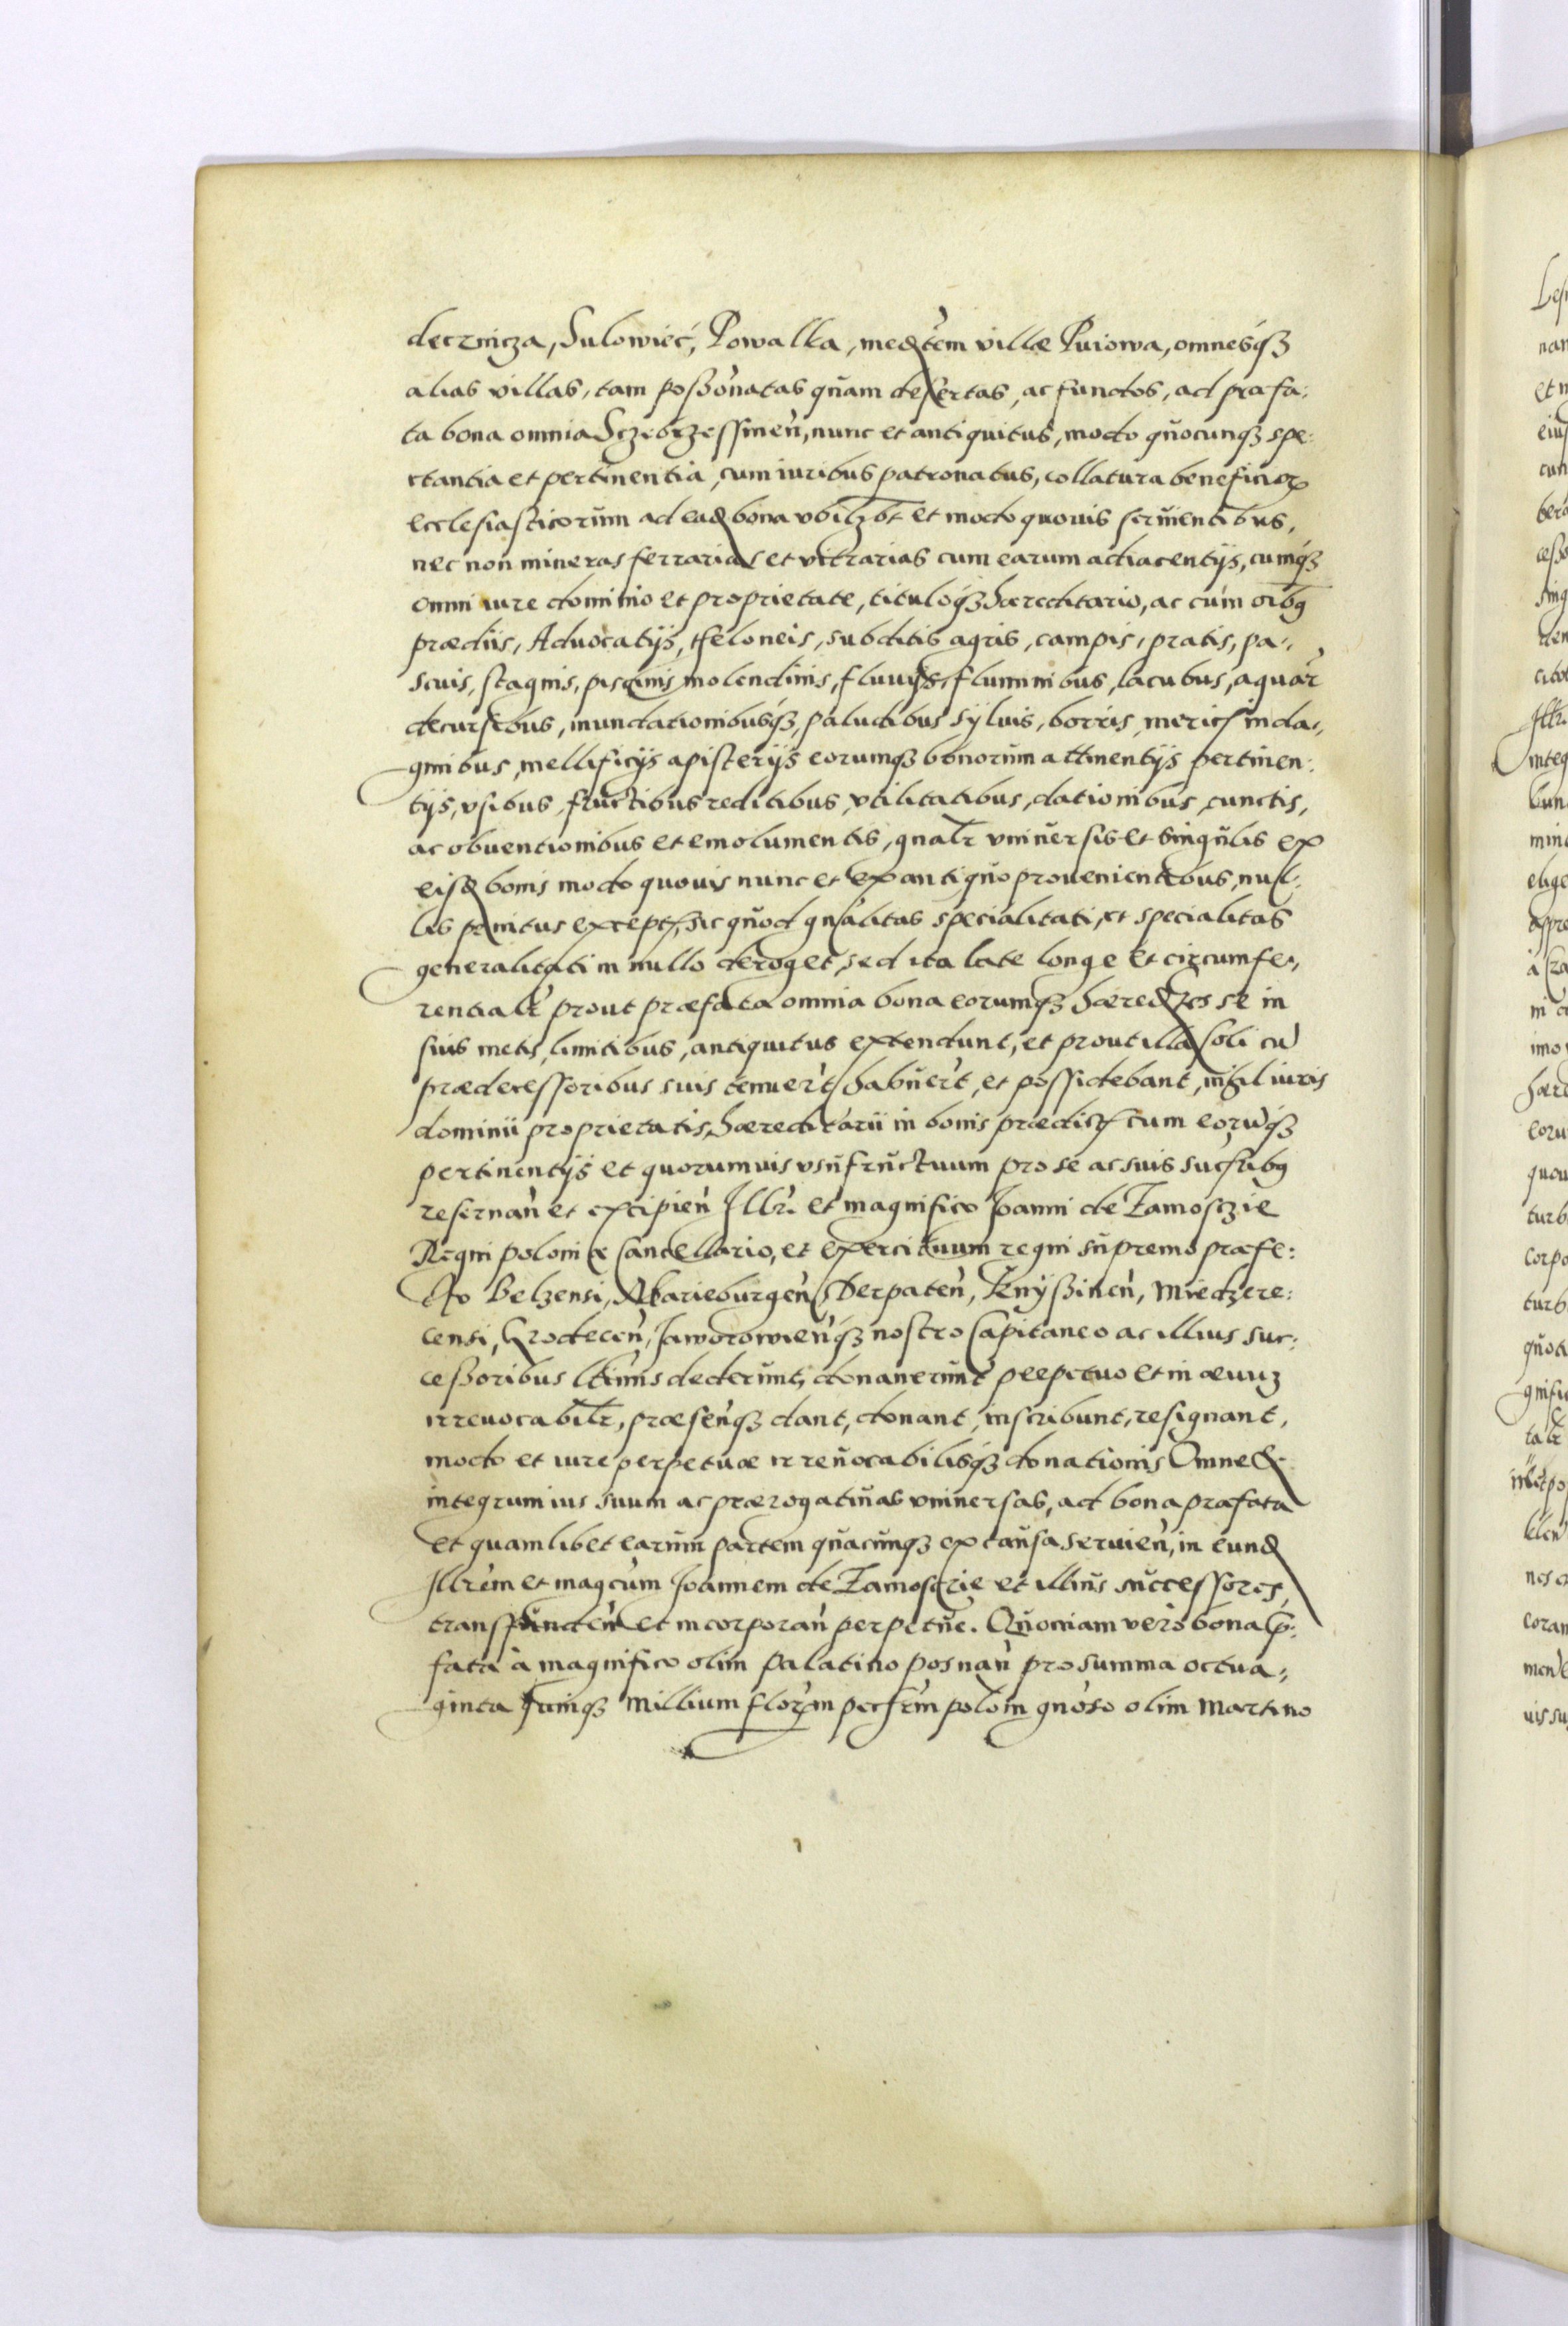 decznicza, Sulowiec, Rowalka, medtem villæ Kuiowa, omnesq́ꝫ
alias villas, tam poßonatas quam desertas, ac fundos, ad præfa:
ta bona omnia Sczebrzessinen̄, nunc et antiquitus, modo quocunqꝫ spe:
ctantia et pertinentia, cum iuribus patronatus, collatura beneficioꝝ
ecclesiasticorum ad ead bona vbilꝫbt et modo quouis seruientibus,
nec non mineras ferrarias et vitrarias cum earum adiacentijs, cumqꝫ
omni iure dominio et proprietate, tituloqꝫ hæreditario, ac cum oībꝫ
prædiis, Aduocatijs, theloneis, subditis agris, campis, pratis, pa:
scuis, stagnis, piscinis molendinis, fluuijs, fluminibus, lacubus, aquar̄
decursibus, inundationibusqꝫ, paludibus sÿluis, borris, mericis inda:
ginibus, mellificijs apisterijs eorumqꝫ bonorum attinentijs pertinen:
tijs, vsibus, fructibus reditibus, vtilitatibus, dationibus, cunctis,
ac obuentionibus et emolumentis, gnalr̄ vniuersis et singulis ex
eisd bonis modo quouis nunc et ex antiquo prouenientibus, nul:
lis penitus exceptis, sic quod gn̄alitas specialitati, et specialitas
generalitati in nullo deroget, sed ita late longe et circumfe:
rentialr̄ prout præfata omnia bona eorumqꝫ hæredtes se in
suis metis, limitibus, antiquitus extendunt, et prout illa soli cū
prædecessoribus suis tenuer̄t, habuer̄t, et possidebant, nihil iuris
dominii proprietatis, hæreditarii in bonis prædictis cum eorūqꝫ
pertinentijs et quorumuis vsufructuum pro se ac suis succßribꝫ
reseruan̄ et excipien̄ Illrī et magnifico Joanni de Zamosczie
Regni poloniæ Cancellario, et exercituum regni supremo præfe:
cto Belzensi, Marieburgen̄, Derpaten̄, Knÿßinen̄, Miedzere:
censi, Grodecen̄, Jaworowien̄qꝫ nostro Capitaneo ac illius suc:
ceßoribus ltīmis dederunt, donauerunt perpetuo et in æuuꝫ
irreuocabilr̄, præsen̄qꝫ dant, donant, inscribunt, resignant,
modo et iure perpetuæ irreuocabilisqꝫ donationis Omne &
integrum ius suum ac prærogatiuas vniuersas, ad bona præfata
et quamlibet earum partem quacunqꝫ ex causa seruien̄, in eund
Illrēm et magcum Joannem de Zamosczie et illius successores,
transfunden̄ et incorporan̄ perpetue. Quoniam vero bona p̄:
fata à magnifico olim palatino posnan̄ pro summa octua:
ginta quinqꝫ millium floꝝ in pecfīm polon̄ gnōso olim Martino